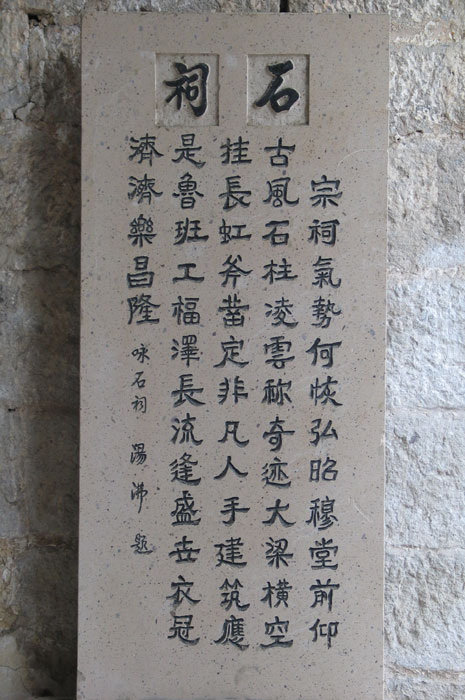 石祠
宗祠氣勢何恢弘昭穆堂前仰
古風石柱凌雲称奇迹大梁橫空
挂長虹斧凿定非凡人手建筑應
是魯班工福澤長流逢盛世衣冠
濟濟樂昌隆
咏石祠 湯沸 題